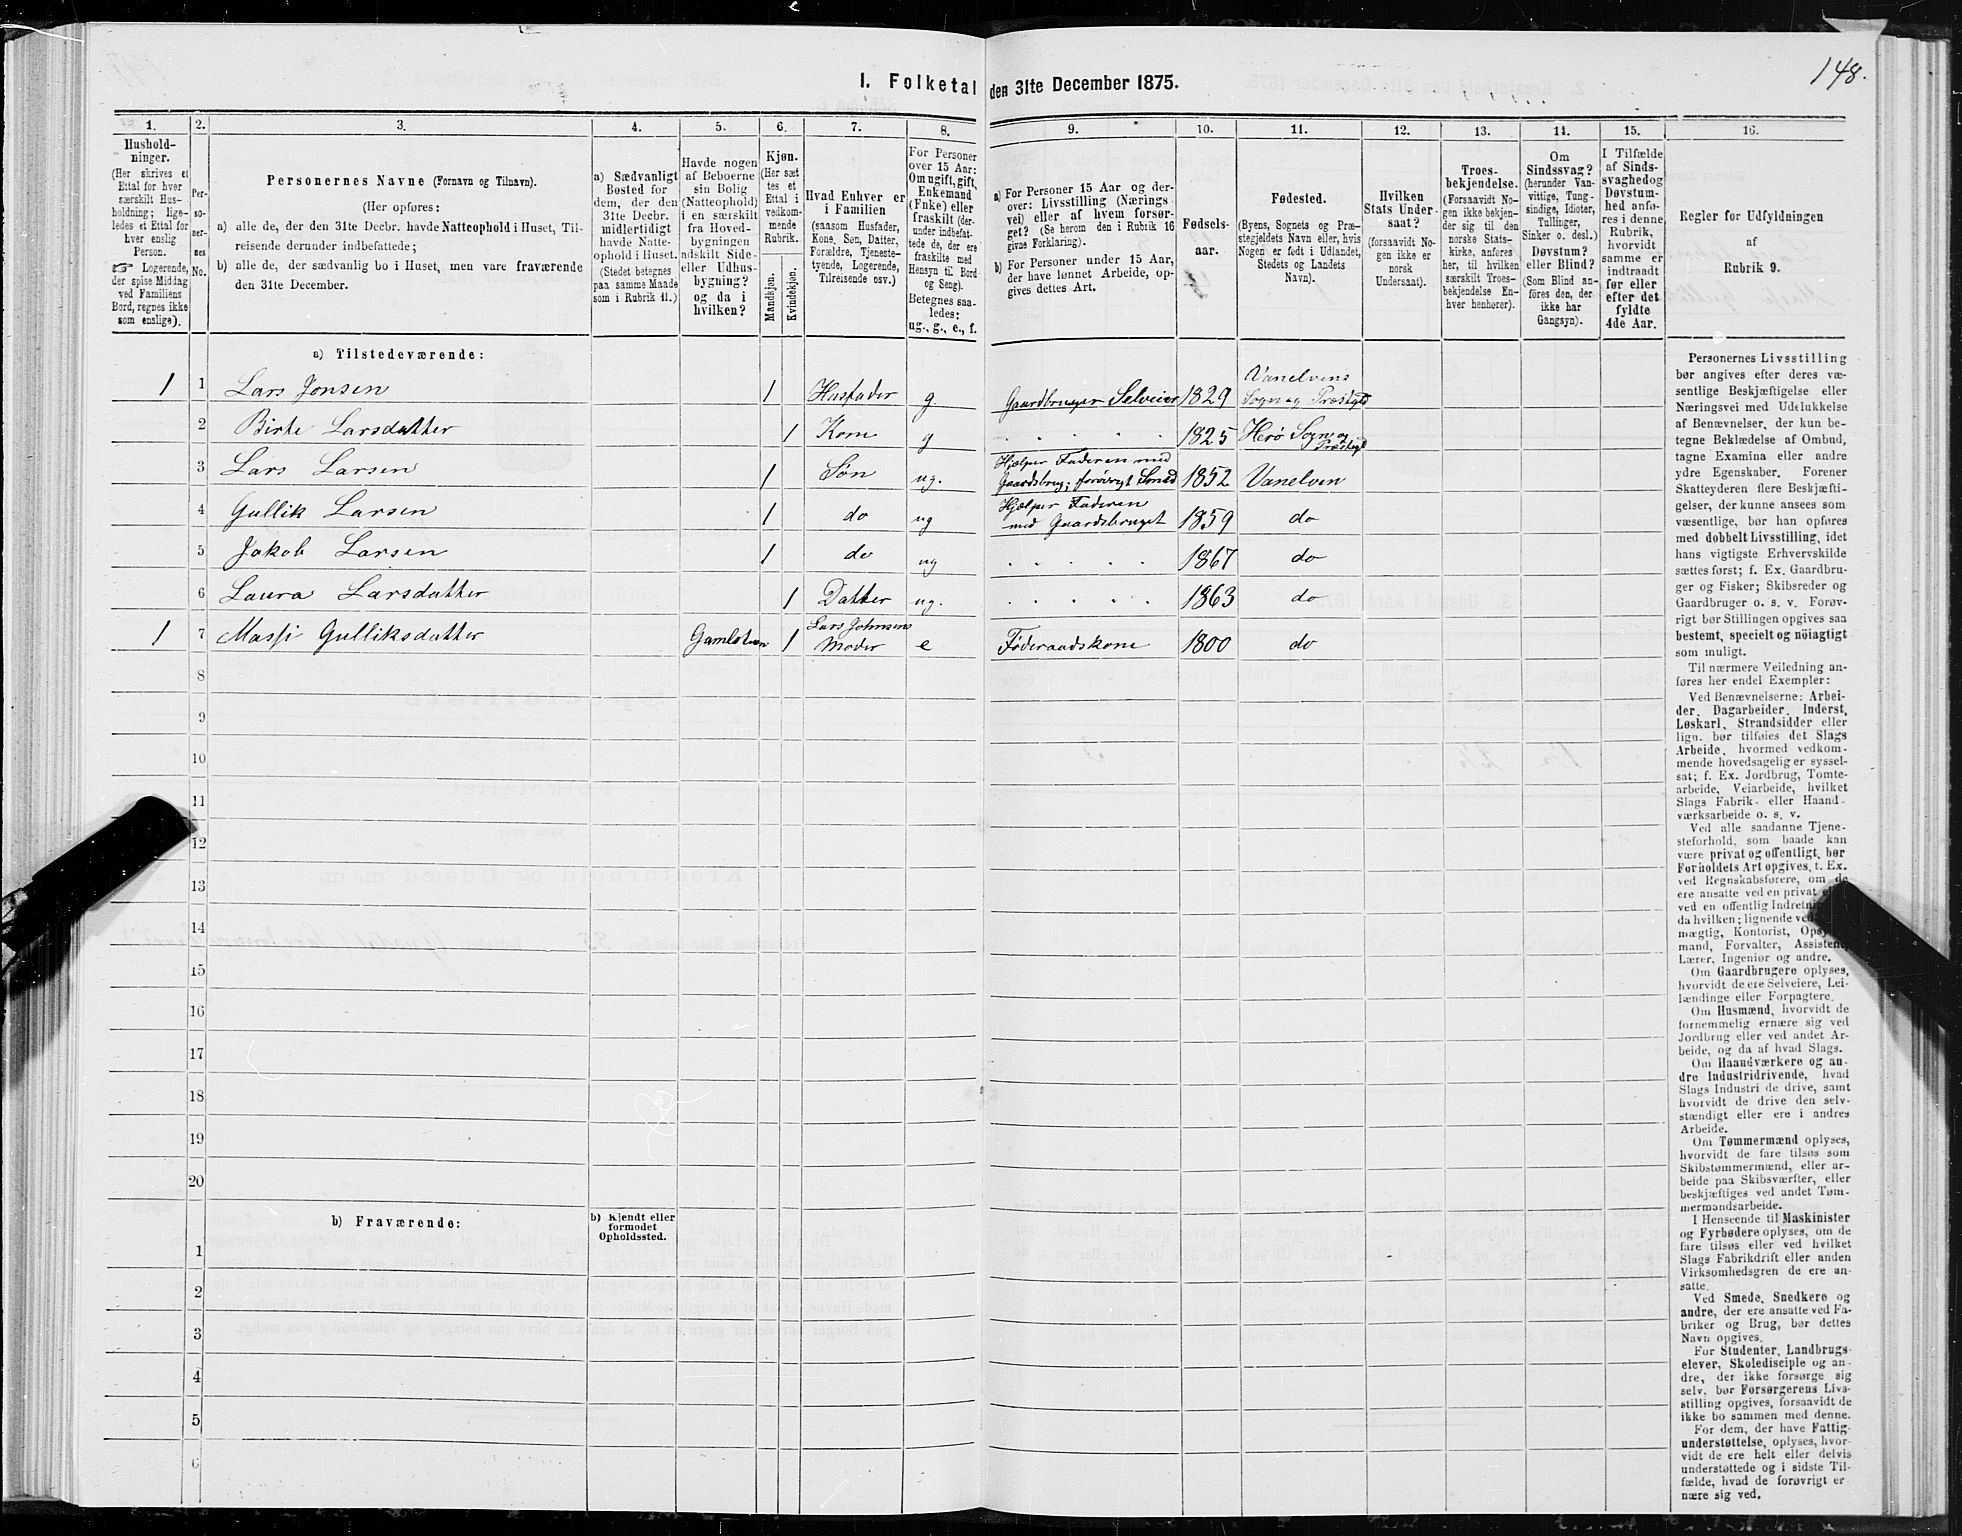 148.
I. Folketal den 31te December 1875.
1. 2. 3. 4. 5. 6. 7. 8. 9. 10. 11. 12. 13. 14. 15. 16.
Hushold-
ninger.
(Her skrives et
Ettal for hver
særskilt Hus-
holdning; lige-
ledes et Ettal for
hver enslig
Person.
☞ Logerende,
der spise Middag
ved Familiens
Bord, regnes ikke
som enslige).
Per-
so-
ner-
nes
No.
Personernes Navne (Fornavn og Tilnavn).
(Her opføres:
a) alle de, der den 31te Decbr. havde Natteophold i Huset, Til-
reisende derunder indbefattede;
b) alle de, der sædvanlig bo i Huset, men vare fraværende
den 31te December.
a) Sædvanligt
Bosted for
dem, der den
31te Decbr.
midlertidigt
havde Natte-
ophold i Huset.
(Stedet betegnes
paa samme Maade
som i Rubrik 11.)
Havde nogen
af Beboerne
sin Bolig
(Natteophold)
i en særskilt
fra Hoved-
bygningen
adskilt Side-
eller Udhus-
bygning?
og da i
hvilken?
Kjøn.
(Her sæt-
tes et
Ettal i
vedkom-
mende
Rubrik.
Mandkjøn.
Kvindekjøn.
Hvad Enhver er
i Familien
(saasom Husfader,
Kone, Søn, Datter,
Forældre, Tjeneste-
tyende, Logerende,
Tilreisende osv.)
For Personer
over 15 Aar:
Om ugift, gift,
Enkemand
(Enke) eller
fraskilt (der-
under indbefat-
tede de, der ere
fraskilte med
Hensyn til Bord
og Seng).
Betegnes saa-
ledes:
ug., g., e., f.
a) For Personer 15 Aar og der-
over: Livsstilling (Nærings-
vei) eller af hvem forsør-
get? (Se herom den i Rubrik 16
givne Forklaring).
b) For Personer under 15 Aar,
der have lønnet Arbeide, op-
gives dettes Art.
Fødsels-
aar.
Fødested.
(Byens, Sognets og Præ-
stegjeldets Navn eller, hvis
Nogen er født i Udlandet,
Stedets og Landets
Navn).
Hvilken
Stats Under-
saat?
(forsaavidt No-
gen ikke er
norsk
Undersaat).
Troes-
bekjendelse.
(Forsaavidt No-
gen ikke bekjen-
der sig til den
norske Stats-
kirke, anføres
her, til hvilken
særskilt Troes-
bekjendelse En-
hver henhører).
Om
Sindssvag?
(herunder Van-
vittige, Tung-
sindige, Idioter,
Tullinger,
Sinker o. desl.)
Døvstum?
eller Blind?
(Som Blind an-
føres den, der
ikke har
Gangsyn).
I Tilfælde
af Sinds-
svaghed og
Døvstum-
hed anfø-
res i denne
Rubrik,
hvorvidt
samme er
indtraadt
før eller
efter det
fyldte
4de Aar.
Regler for Udfyldningen
af
Rubrik 9.
a) Tilstedeværende:
1 1 Lars Jonsen 1 Husfader g. Gaardbruger Selveier 1829 Vanelvens Sogn og Præstgd
2 Birte Larsdatter 1 Kone g " " " " 1825 Herø Sogn og Præstgd
3 Lars Larsen 1 Søn ug. Hjælper Faderen med Gaardsbrug; forøvrigt Smed 1852 Vanelven
4 Gullik Larsen 1 do ug Hjælper Faderen med Gaardsbruget 1859 do
5 Jakob Larsen 1 do ug " " " " 1867 do
6 Laura Larsdatter 1 Datter ug. " " " " 1863 do
1 7 Massi Gulliksdatter Gamlestuen 1 Lars Johnsens Moder e Föderaadskone 1800 do
8
9
10
11
12
13
14
15
16
17
18
19
20
b) Fraværende:
b) Kjendt eller
formodet
Opholdssted.
1
2
3
4
5
6
Personernes Livsstilling
bør angives efter deres væ-
sentlige Beskjæftigelse eller
Næringsvei med Udelukkelse
af Benævnelser, der kun be-
tegne Beklædelse af Ombud,
tagne Examina eller andre
ydre Egenskaber. Forener
Skatteyderen flere Beskjæfti-
gelser, der kunne ansees som
væsentlige, bør han opføres
med dobbelt Livsstilling, idet
hans vigtigste Erhvervskilde
sættes først; f. Ex. Gaardbru-
ger og Fisker; Skibsreder og
Gaardbruger o. s. v. Forøv-
rigt bør Stillingen opgives saa
bestemt, specielt og nöiagtigt
som muligt.
Til nærmere Veiledning an-
føres her endel Exempler:
Ved Benævnelserne: Arbei-
der, Dagarbeider, Inderst,
Løskarl, Strandsidder eller
lign. bør tilføies det Slags
Arbeide, hvormed vedkom-
mende hovedsagelig er syssel-
sat; f. Ex. Jordbrug, Tomte-
arbeide, Veiarbeide, hvilket
Slags Fabrik- eller Haand-
værksarbeide o. s. v.
Ved alle saadanne Tjene-
steforhold, som baade kan
være privat og offentligt, bør
Forholdets Art opgives, t. Ex.
ved Regnskabsførere, om de
ere ansatte ved en privat
ved en offentlig
da hvilken; lignende
mægtig, Kontorist,
mand, Forvalter, Assistent,
Lærer, Ingeniør og andre.
Om Gaardbrugere oplyses,
hvorvidt de ere Selveiere, Lei-
lændinge eller Forpagtere.
Om Husmænd, hvorvidt de
fornemmelig ernære sig ved
Jordbrug eller ved andet Ar-
beide, og da af hvad Slags.
Om Haandværkere og an-
dre Industridrivende, hvad
Slags Industri de drive, samt
hvorvidt de drive den selv-
stændigt eller ere i andres
Arbeide.
Om Tømmermænd oplyses,
hvorvidt de fare tilsøs som
Skibstømmermænd, eller ar-
beide paa Skibsværfter, eller
beskjæftiges ved andet Tøm-
mermandsarbeide.
I Henseende til Maskinister
og Fyrbødere oplyses, om de
fare tilsøs eller ved hvilket
Slags Fabrikdrift eller anden
Virksomhedsgren de ere an-
satte.
Ved Smede, Snedkere og
andre, der ere ansatte ved Fa-
briker og Brug, bør dettes
Navn opgives.
For Studenter, Landbrugs-
elever, Skoledisciple og an-
dre, der ikke forsørge sig
selv, bør Forsørgerens Livs-
stilling opgives, forsaavidt de
ikke bo sammen med denne.
For dem, der have Fattig-
understøttelse, oplyses, hvor-
vidt de ere helt eller delvis
understøttede og i sidste Til-
fælde, hvad de forøvrigt er-
nære sig ved.